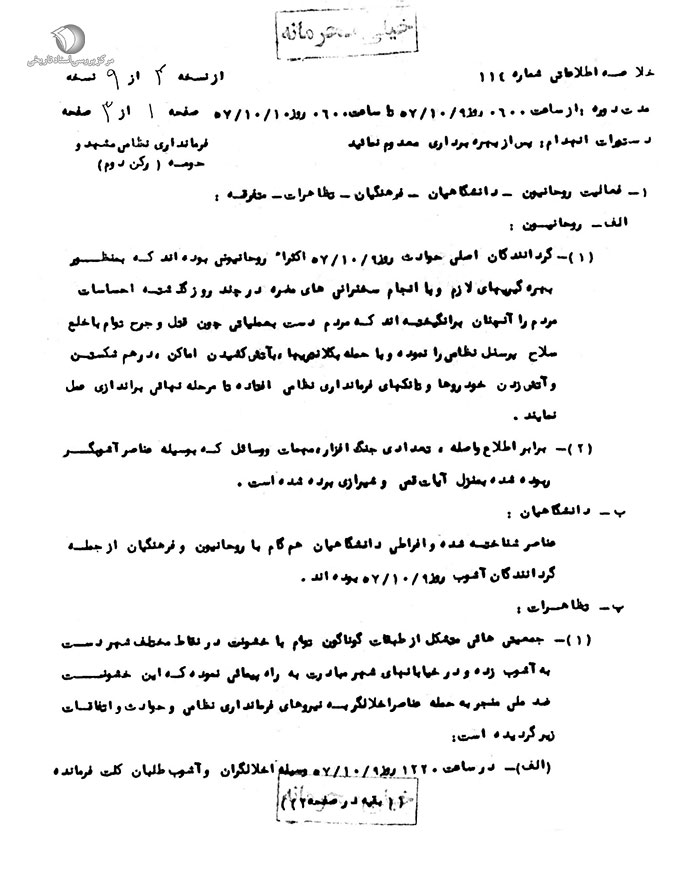 خیلی محرمانه
مرکز بررسی اسناد تاریخی
خلاصه اطلاعاتی شماره ۱۱۴ از نسخه ۳ از ۹ نسخه
مدت دوره : از ساعت ۰۶۰۰ روز ۵۷/۱۰/۹ تا ساعت ۰۶۰۰ روز ۵۷/۱۰/۱۰ صفحه ۱ از ۳ صفحه
دستورات انهدام : پس از بهره برداری معدوم نمائید فرمانداری نظامی مشهد و
حومه ( رکن دوم )
۱- فعالیت روحانیون - دانشگاهیان - فرهنگیان - تظاهرات - متفرقه :
الف - روحانیون :
(۱)- گردانندگان اصلی حوادث روز ۵۷/۱۰/۹ اکثراً روحانیونی بوده اند که بمنظور
بهره گیریهای لازم و با انجام سخنرانی های مضره در چند روز گذشته احساسات
مردم را آنچنان برانگیخته اند که مردم دست بعملیاتی چون قتل و جرح توام با خلع
سلاح پرسنل نظامی را نموده و با حمله بکلانتریها ، بآتش کشیدن اماکن ، درهم شکستن
و آتش زدن خودروها و تانکهای فرمانداری نظامی افتاده تا مرحله نهائی براندازی عمل
نمایند .
(۲)- برابر اطلاع واصله ، تعدادی جنگ افزار ، مهمات و وسائل که بوسیله عناصر آشوبگر
ربوده شده بمنزل آیات قمی و شیرازی برده شده است .
ب - دانشگاهیان :
عناصر شناخته شده و افراطی دانشگاهیان هم گام با روحانیون و فرهنگیان از جمله
گردانندگان آشوب روز ۵۷/۱۰/۹ بوده اند .
پ - تظاهرات :
(۱)- جمعیتی هائی متشکل از طبقات گوناگون توام با خشونت در نقاط مختلف شهر دست
به آشوب زده و در خیابانهای شهر مبادرت به راه پیمائی نموده که این خشونت
ضد ملی منجر به حمله عناصر اخلالگر به نیروهای فرمانداری نظامی و حوادث و اتفاقات
زیر گردیده است:
(الف)- در ساعت ۱۲۲۰ روز ۵۷/۱۰/۹ وسیله اخلالگران و آشوب طلبان کلت فرمانده
بقیه در صفحه ۲
خیلی محرمانه